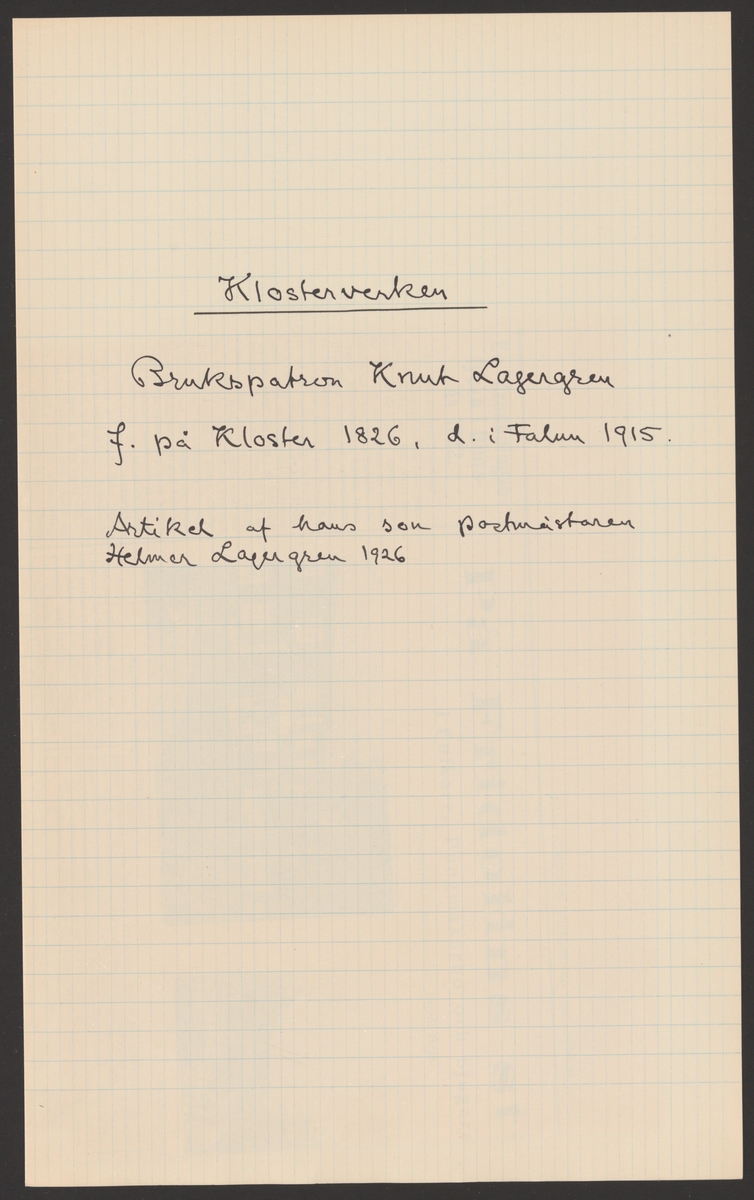 Klosterverken
Brukspatron Knut Lagergren
f. på Kloster 1826, d. i Falun 1915.
Artikel af hans son postmästaren
Helmer Lagergren 1926